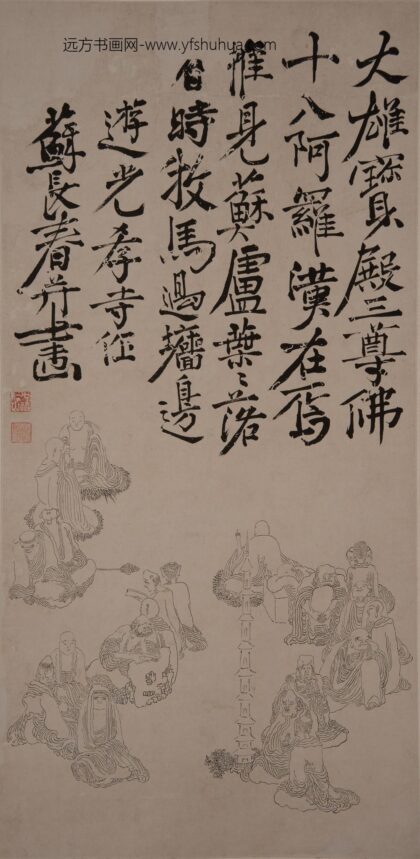 远方书画网-www.yfshuhua.com
大雄寶殿三尊佛
十八阿羅漢在焉
見蘇盧葉〻落
時牧馬過墻邊
遊光孝寺作
蘇長春并畫